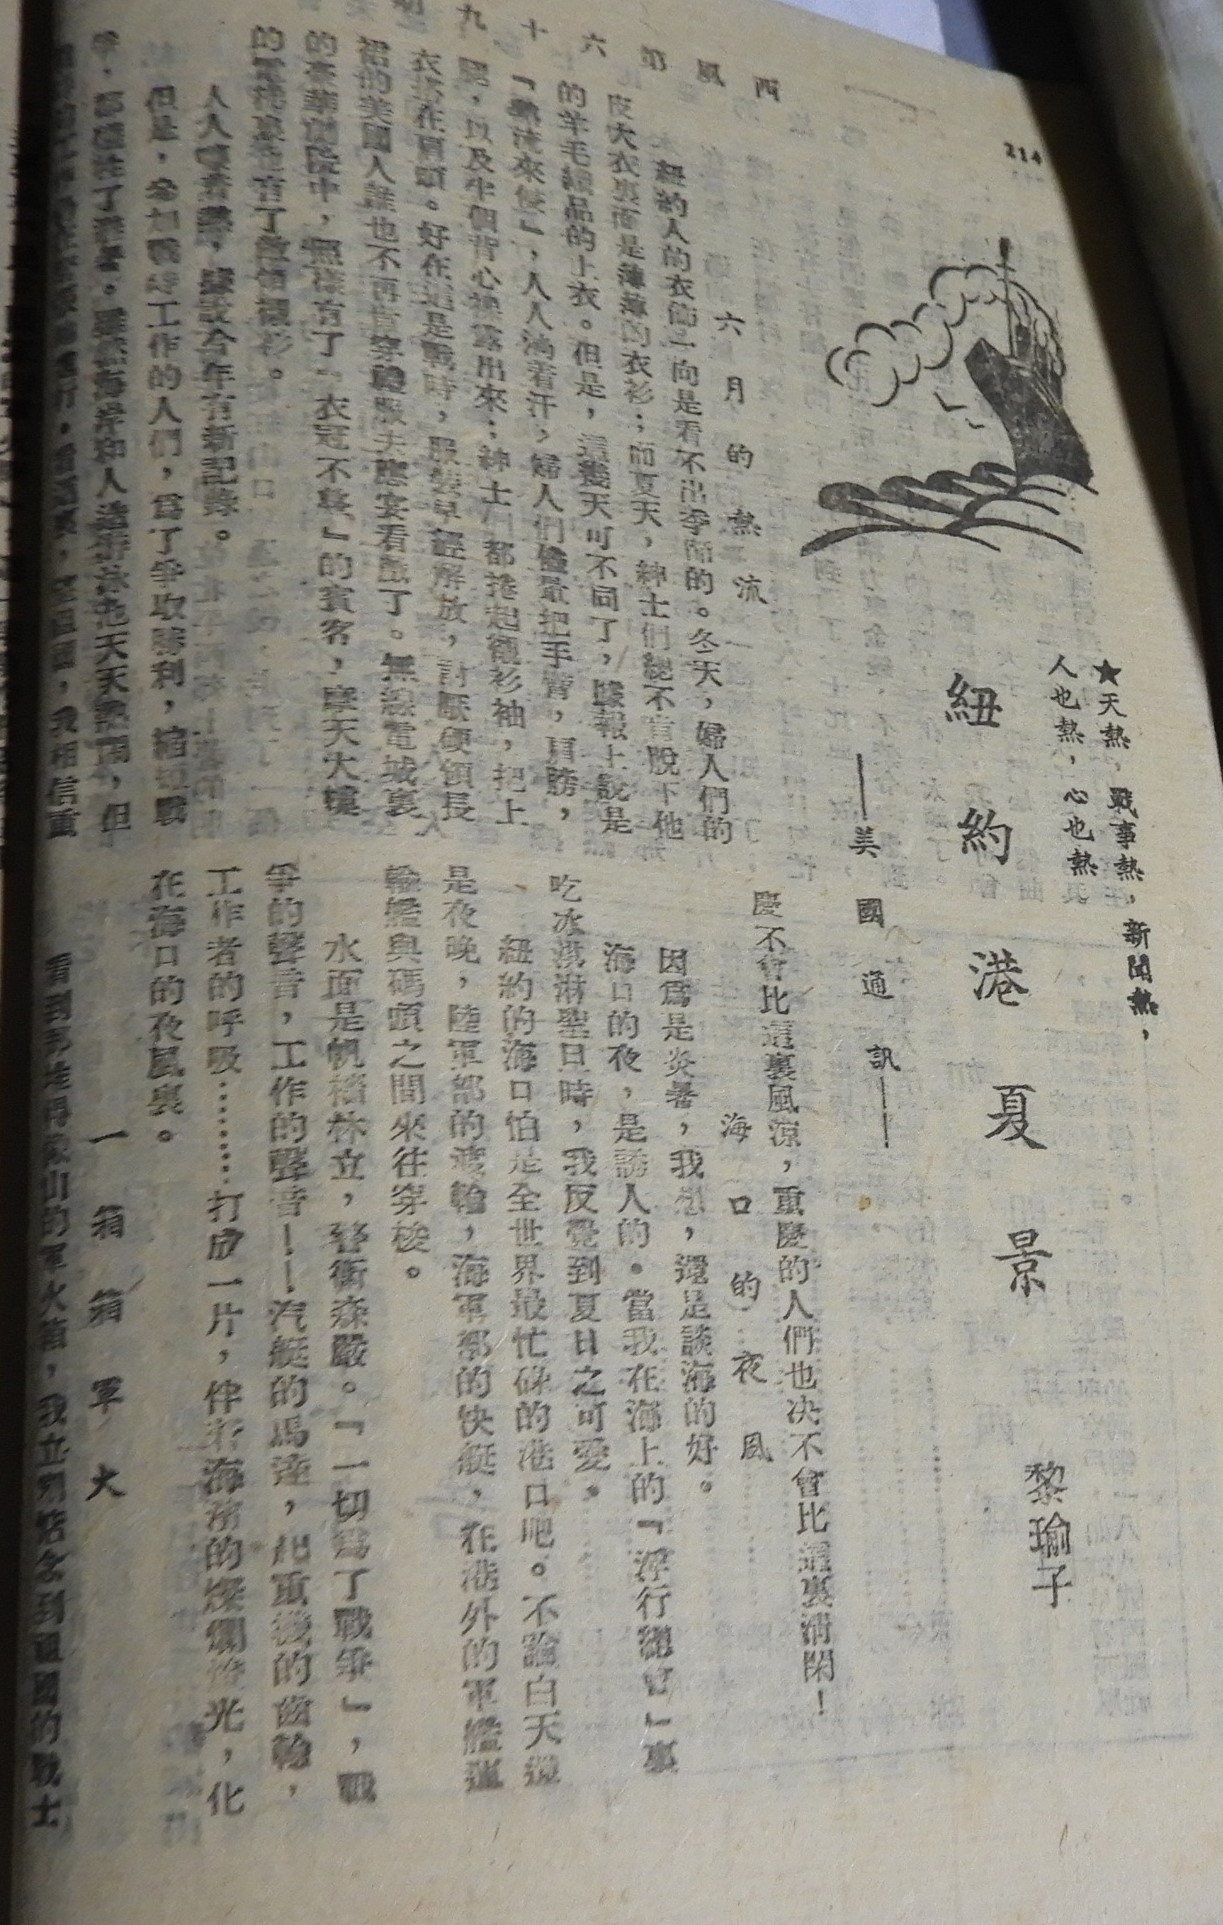 214
西風第六十九
★天熱，戰事熱，新聞熱，
人也熱，心也熱
紐約港夏景
黎瑜子
——美國通訊——
六月的熱流
紐約人的衣飾一向是看不出季節的。冬天，婦人們的
皮大衣裏面是薄薄的衣衫；而夏天，紳士們總不肯脫下他
的羊毛織品的上衣。但是，這幾天可不同了，據報上說是
『熱流來侵』，人人淌着汗，婦人們儘量把手臂，肩膀，
腿，以及半個背心裸露出來；紳士們都捲起襯衫袖，把上
衣掛在肩頭。好在這是戰時，服裝早經解放，討厭硬領長
裙的美國人誰也不再肯穿禮服去應宴看戲了。無線電城裏
的豪華劇院中，照樣有了『衣冠不整』的賓客，摩天大樓
的電梯裏也有了敞領襯衫。
人人嚷着熱，據說今年有新記錄。
但是，參加戰時工作的人們，爲了爭取勝利，縮短戰
爭，都犧牲了避暑。雖然海岸和人造游泳池天天熱鬧，但
，我相信重
慶不會比這裏風涼，重慶的人們也決不會比這裏清閑！
海口的夜風
因爲是炎暑，我想，還是談海的好。
海口的夜，是誘人的。當我在海上的『浮行總會』裏
吃冰淇淋聖日時，我反覺到夏日之可愛。
紐約的海口怕是全世界最忙碌的港口吧。不論白天還
是夜晚，陸軍部的渡輪，海軍部的快艇，在港外的軍艦運
輸艦與碼頭之間來往穿梭。
水面是帆檣林立，警衛森嚴。『一切爲了戰爭』，戰
爭的聲音，工作的聲音——汽艇的馬達，起重機的齒輪，
工作者的呼吸………打成一片，伴着海濱的燦爛燈光，化
在海口的夜風裏。
一箱箱軍火
看到那堆得像山的軍火箱，我立刻惦念到祖國的戰士